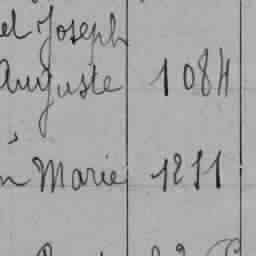 el Joseph
Auguste 1084
n Marie 1211